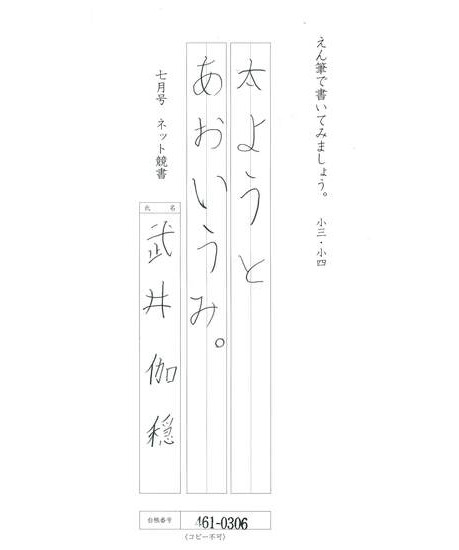 えん筆で書いてみましょう。 小三・小四
太ようと
あおいうみ。
七月号 ネット競書
氏名
武井伽穏
台帳番号 461-0306
(コピー不可)